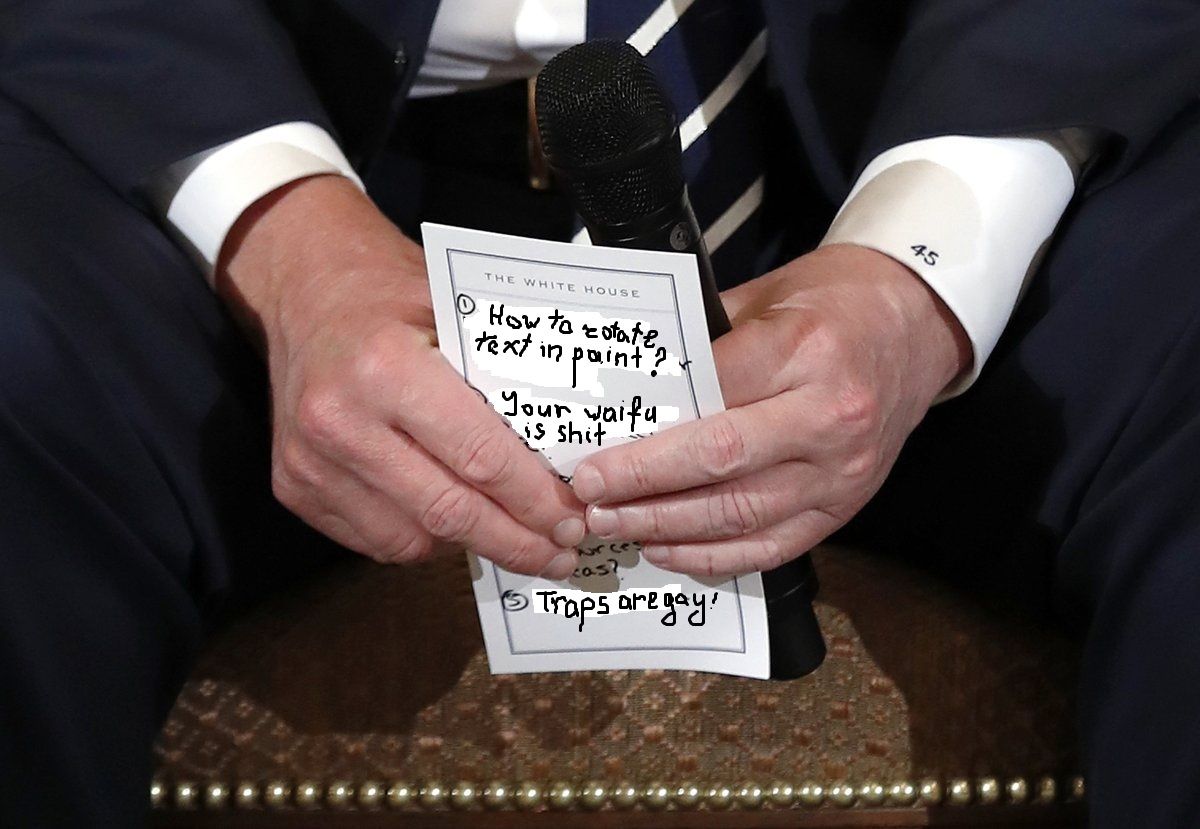 45
THE WHITE HOUSE
1 How to rotate
text in paint?
Your waifu
is shit
eas?
5 Traps are gay!